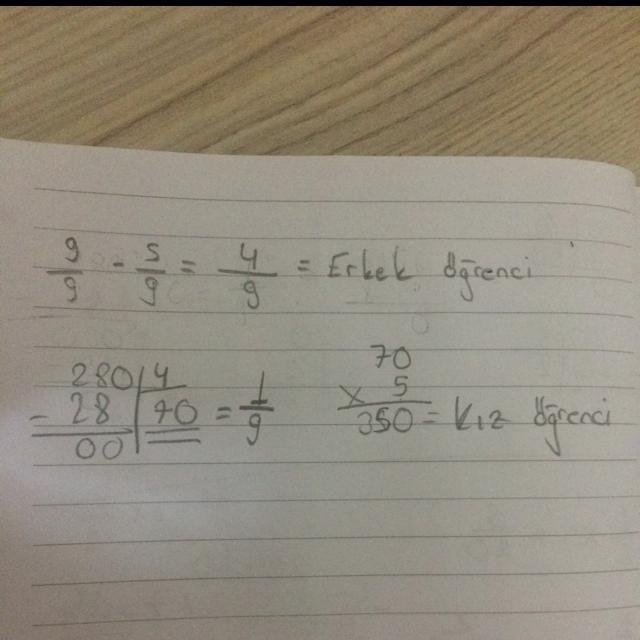 9/9 - 5/9 = 4/9 = Erkek öğrenci
280 | 4
- 28 | 70 = 1/9
00
70
x 5
350 = kız öğrenci